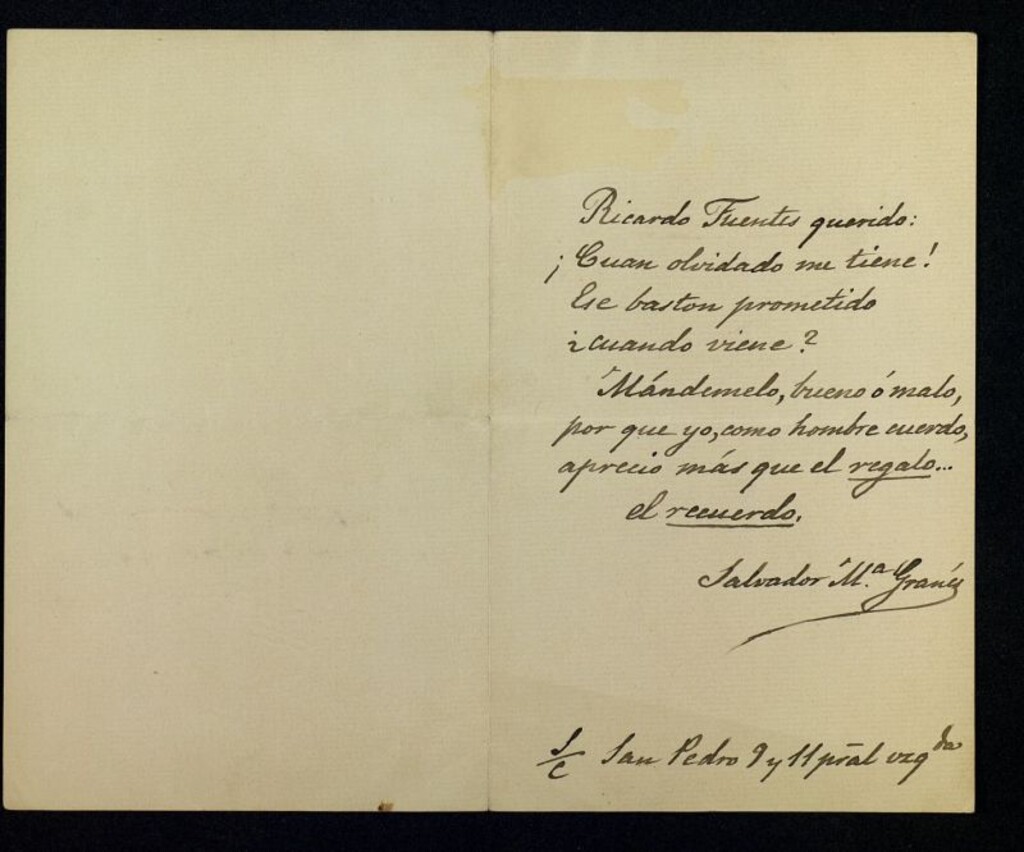 Ricardo Fuentes querido:
¡Cuan olvidado me tiene!
Ese baston prometido
¿cuando viene?
Mándemelo, bueno ó malo,
por que yo, como hombre cuerdo,
aprecio más que el regalo...
el recuerdo.
Salvador Mª. Granés
S/C San Pedro 9 y 11 pral izqda